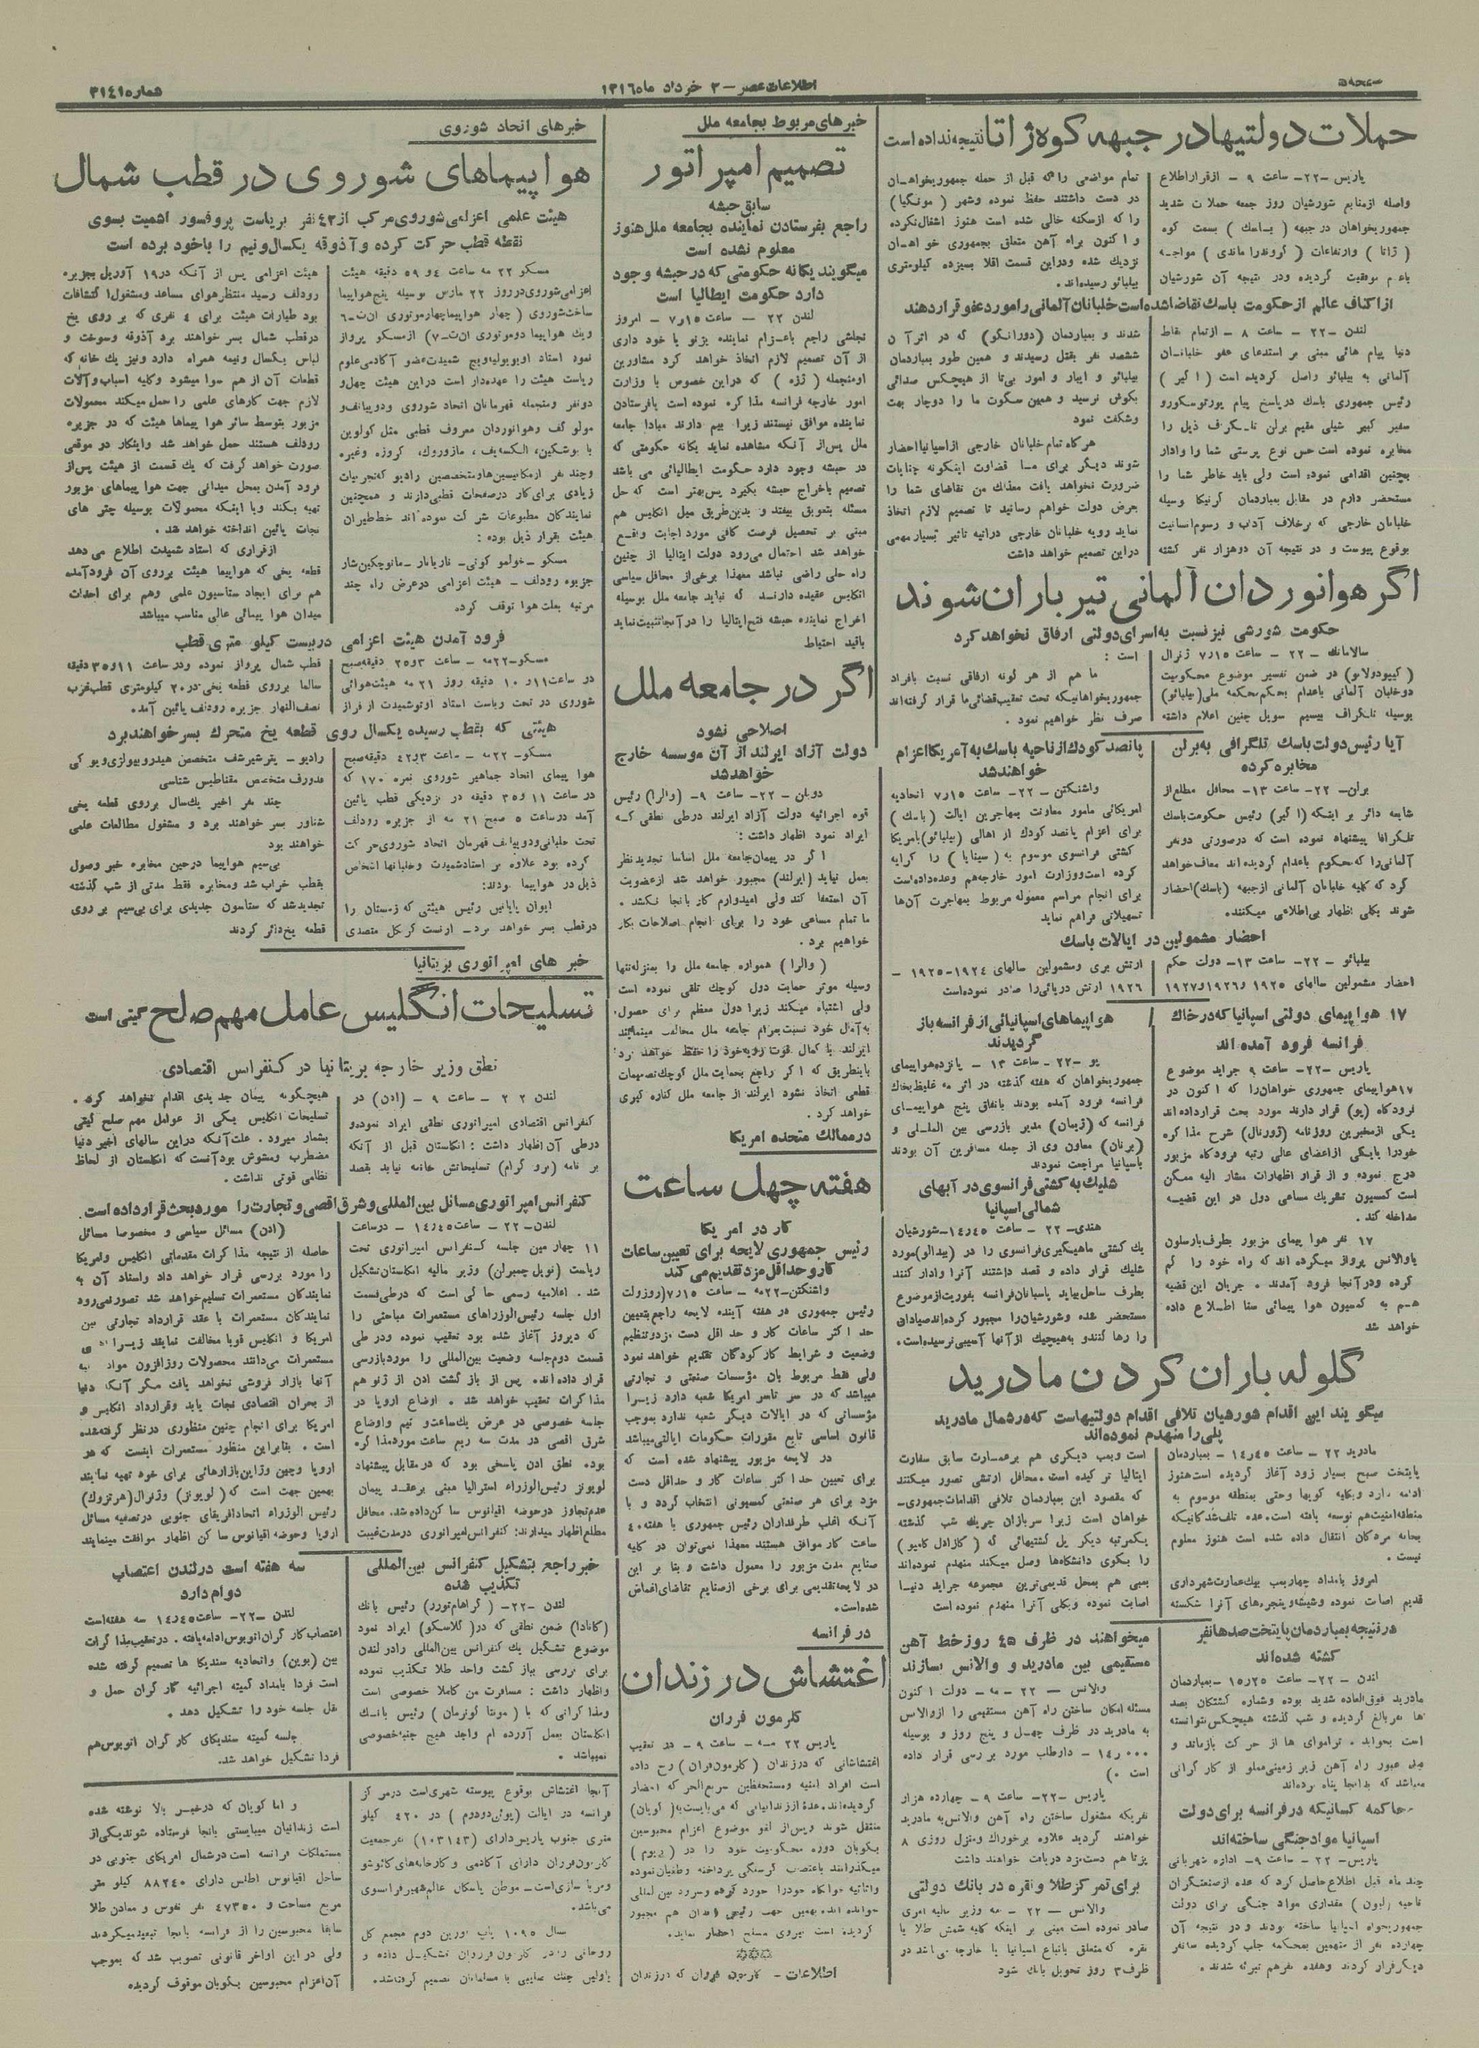 صفحه۵
اطلاعات عصر – ۳ خرداد ماه ۱۳۱۶
شماره ۳۱۴۱
حملات دولتیها در جبهه کوه ژاتا نتیجه نداده است
پاریس -۲۲- ساعت ۹ - از قرار اطلاع
واصله از منابع شورشیان روز جمعه حملات شدید
جمهوریخواهان در جبهه ( باسك ) بسمت کوه
باعدم موفقیت گردیده ودر نتیجه آن شورشیان
تمام مواضعی را که قبل از حمله جمهوریخواهان
در دست داشتند حفظ نموده وشهر ( مونگیا )
را که ازسکنه خالی شده است هنوز اشغال نکرده
و اکنون براه آهن متعلق بجمهوری خواهان
نزدیك شده ودراین قسمت اقلا بسیزده کیلومتری
بیلبائو رسیده‌اند.
از اکناف عالم از حکومت باسك تقاضا شده است خلبانان آلمانی را مورد عفو قرار دهند
لندن -۲۲- ساعت ۸ - ازتمام نقاط
دنیا پیام هائی مبنی بر استدعای عفو خلبانان
آلمانی به بیلبائو واصل گردیده است ( اگیر )
رئیس جمهوری باسك درپاسخ پیام پورتوسکورو
سفیر کبیر شیلی مقیم برلن تلگراف ذیل را
مخابره نموده است حس نوع پرستی شما را وادار
بچنین اقدامی نموده است ولی باید خاطر شما را
مستحضر دارم در مقابل بمباردمان گرنیکا وسیله
خلبانان خارجی که برخلاف آداب و رسوم انسانیت
بوقوع پیوست و در نتیجه آن دوهزار نفر کشته
شدند و بمباردمان (دورانگو) که در اثر آن
ششصد نفر بقتل رسیدند و همین طور بمباردمان
بیلبائو و ایبار و امور بی‌تا از هیچکس صدائی
بگوش نرسید و همین سکوت ما را دوچار بهت
وشگفت نمود
هرگاه تمام خلبانان خارجی ازاسپانیا احضار
شوند دیگر برای مسا قضاوت اینگونه جنایات
ضرورت نخواهد یافت معذلك من تقاضای شما را
بعرض دولت خواهم رسانید تا تصمیم لازم اتخاذ
نماید رویه خلبانان خارجی دراتیه تاثیر بسیارمهمی
دراین تصمیم خواهد داشت
اگر هوانوردان آلمانی تیرباران شوند
حکومت شورشی نیز نسبت به اسرای دولتی ارفاق نخواهد کرد
سالامانك - ۲۲ - ساعت ۷٫۱۵ ژنرال
(کیپودولانو) در ضمن تفسیر موضوع محکومیت
دوخلبان آلمانی باعدام بحکم محکمه ملی(بیلبائو)
بوسیله تلگراف بیسیم سویل چنین اعلام داشته
است :
ما هم از هر گونه ارفاقی نسبت بافراد
جمهوریخواهانیکه تحت تعقیب قضائی ما قرار گرفته‌اند
صرف نظر خواهیم نمود .
آیا رئیس دولت باسك تلگرافی به برلن
مخابره کرده
برلن- ۲۲- ساعت ۱۳- محافل مطلع از
شایعه دائر بر اینکه (اگیر) رئیس حکومت باسك
تلگرافا پیشنهاد نموده است که درصورتی دونفر
آلمانی‌را که محکوم باعدام گردیده‌اند معاف خواهد
گرد که کلیه خلبانان آلمانی ازجبهه (باسك) احضار
شوند بکلی اظهار بی‌اطلاعی میکنند.
پانصد کودك از ناحیه باسك به آمریکا اعزام
خواهند شد
واشنگتن -۲۲- ساعت ۷٫۱۵ اتحادیه
امریکائی مامور معاونت بمهاجرین ایالت ( باسك )
برای اعزام پانصد کودك از اهالی (بیلبائو) بامریکا
کشتی فرانسوی موسوم به (سینایا) را کرایه
کرده است ووزارت امور خارجه هم وعده داده است
برای انجام مراسم معموله مربوط بمهاجرت آن‌ها
تسهیلاتی فراهم نماید
احضار مشمولین در ایالات باسك
بیلبائو -۲۲- ساعت ۱۳- دولت حکم
احضار مشمولین سالهای ۱۹۲۵ و۱۹۲۶و۱۹۲۷
ارتش بری ومشمولین سالهای ۱۹۲۴-۱۹۲۵ -
۱۹۲۶ ارتش دریائی را صادر نموده است
۱۷ هواپیمای دولتی اسپانیا که در خاك
فرانسه فرود آمده اند
پاریس -۲۲- ساعت ۹ جراید موضوع
۱۷هواپیمای جمهوری خواهان را که اکنون در
فرودگاه (پو) قرار دارند مورد بحث قرارداده اند
یکی ازمخبرین روزنامه (ژورنال) شرح مذاکره
خودرا بایکی ازاعضای عالی رتبه فرودگاه مزبور
درج نموده و از قرار اظهارات مشار الیه ممکن
است کمسیون تفریك مساعی دول در این قضیه
مداخله کند .
۱۷ نفر هوا پیمای مزبور بطرف بارسلون
یاوالانس پرواز میکرده اند که راه خود را گم
کرده ودرآنجا فرود آمدند . جریان این قضیه
هم به کمسیون هوا پیمائی سنا اطلاع داده
خواهد شد
هواپیماهای اسپانیائی از فرانسه باز
گردیدند
پو -۲۲- ساعت ۱۳ - پانزده‌هواپیمای
جمهوریخواهان که هفته گذشته در اثر مه غلیظ بخاك
فرانسه فرود آمده بودند باتفاق پنج هواپیمای
فرانسه که (ژیمان) مدیر بازرسی بین المللی و
(برنان) معاون وی از جمله مسافرین آن بودند
باسپانیا مراجعت نمودند
شلیك به کشتی فرانسوی در آبهای
شمالی اسپانیا
هندی- ۲۲ - ساعت ۱۴٫۴۵-شورشیان
یك کشتی ماهیگیری فرانسوی را در (بیدالو) مورد
شلیك قرار داده و قصد داشتند آنرا وادار کنند
بطرف ساحل بیاید پاسبانان فرانسه بفوریت ازموضوع
مستحضر شده وشورشیان را مجبور کرده‌اند صیادان
را رها کنند و به هیچیك ازآنها آسیبی نرسیده است.
گلوله باران کردن مادرید
میگویند این اقدام شورشیان تلافی اقدام دولتیهاست که در شمال مادرید
پلی را منهدم نموده‌اند
مادرید ۲۲ - ساعت ۱۴٫۴۵ - بمباردمان
پایتخت صبح بسیار زود آغاز گردیده است هنوز
ادامه دارد وبکلیه کوبها وحتی بمنطقه موسوم به
منطقه امنیت هم توسعه یافته است. عده تلف شدگانیکه
بخانه مردگان انتقال داده شده است هنوز معلوم
نیست .
امروز بامداد چهاربمب بیك عمارت شهرداری
قدیم اصابت نموده وشیشه وپنجره‌های آنرا شکسته
است وبمب دیگری هم برعمارت سابق سفارت
ایتالیا تر کیده است. محافل ارتشی تصور میکنند
که مقصود این بمباردمان تلافی اقدامات جمهوری-
خواهان است زیرا سربازان چریك شب گذشته
یکمرتبه دیگر پل کشتیهائی که ( کازادل کامپو )
را بکوی دانشگاه‌ها وصل میکند منهدم نموده‌اند
بمبی هم بمحل قدیمی‌ترین مجموعه جراید دنیا
اصابت نموده وبکلی آنرا منهدم نموده است
در نتیجه بمباردمان پایتخت صدها نفر
کشته شده‌اند
لندن - ۲۲ - ساعت ۱۵٫۲۵ -بمباردمان
مادرید فوق‌العاده شدید بوده وشماره کشتگان بصد
ها نفر بالغ گردیده و شب گذشته هیچکس نتوانسته
است بخوابد . تراموای ها از حرکت بازماند و
محل عبور راه آهن زیر زمینی مملو از کار گرانی
میباشد که بدانجا پناه برده‌اند
محاکمه کسانیکه در فرانسه برای دولت
اسپانیا مواد جنگی ساخته‌اند
پاریس - ۲۲ - ساعت ۹- اداره شهربانی
چند ماه قبل اطلاع حاصل کرد که عده ازصنعتگران
ناحیه (لیون) مقداری مواد جنگی برای دولت
جمهوریخواه اسپانیا ساخته بودند و در نتیجه آن
چهارده نفر از متهمین بمحکمه جلب گردیده سه نفر
دیگرفرار کردند وهفده نفرهم تبرئه شدند.
میخواهند در ظرف ۴۵ روز خط آهن
مستقیمی بین مادرید و والانس بسازند
والانس - ۲۲ - مه - دولت اکنون
مسئله امکان ساختن راه آهن مستقیمی را ازوالانس
به مادرید در ظرف چهل و پنج روز و بوسیله
۱۴٫۰۰۰ - دارطلب مورد بررسی قرار داده
است ه)
پاریس -۲۲- ساعت ۹ - چهارده هزار
نفریکه مشغول ساختن راه آهن والانس به مادرید
خواهند گردید علاوه برخوراك ومنزل روزی ۸
پزتا هم دست‌مزد دریافت خواهند داشت
برای تمرکز طلا و نقره در بانك دولتی
والانس - ۲۲ - مه وزیر مالیه امری
صادر نموده است مبنی بر اینکه کلیه شمش طلا یا
نقره که متعلق باتباع اسپانیا یا خارجه می باشد در
ظرف ۳ روز تحویل بانك شود
خبرهای مربوط بجامعه ملل
تصمیم امپراتور
سابق حبشه
راجع بفرستادن نماینده بجامعه ملل هنوز
معلوم نشده است
میگویند یگانه حکومتی که در حبشه وجود
دارد حکومت ایطالیا است
لندن ۲۲ - ساعت ۷٫۱۵ - امروز
نجاشی راجع باعزام نماینده بژنو یا خود داری
از آن تصمیم لازم اتخاذ خواهد کرد مشاورین
اومنجمله ( ژزه ) که دراین خصوص با وزارت
امور خارجه فرانسه مذاکره نموده است بافرستادن
نماینده موافق نیستند زیرا بیم دارند مبادا جامعه
ملل پس از آنکه مشاهده نماید یگانه حکومتی که
در حبشه وجود دارد حکومت ایطالیائی می باشد
تصمیم باخراج حبشه بگیرد پس بهتر است که حل
مسئله بتعویق بیفتد و بدین‌طریق میل انگلیس هم
مبنی بر تحصیل فرصت کافی مورد اجابت واقع
خواهد شد احتمال می‌رود دولت ایتالیا از چنین
راه حلی راضی نباشد معهذا برخی از محافل سیاسی
انگلیس عقیده دارند که نباید جامعه ملل بوسیله
اخراج نماینده حبشه فتح ایتالیا را درآنجا تثبیت نماید
باقید احتیاط
اگر در جامعه ملل
اصلاحی نشود
دولت آزاد ایرلند از آن موسسه خارج
خواهد شد
دوبلن -۲۲- ساعت ۹- (والرا) رئیس
قوه اجرائیه دولت آزاد ایرلند درطی نطقی که
ایراد نمود اظهار داشت :
اگر در پیمان جامعه ملل اساسا تجدید نظر
بعمل نیاید (ایرلند) مجبور خواهد شد ازعضویت
آن استعفا کند ولی امیدوارم کار بانجا نکشد .
ما تمام مساعی خود را برای انجام اصلاحات بکار
خواهیم برد .
( والرا ) همواره جامعه ملل را بمنزله تنها
وسیله موثر حمایت دول کوچك تلقی نموده است
ولی اشتباه میکند زیرا دول معظم برای حصول
به آمال خود نسبت بمرام جامعه ملل مخالفت مینمایند
ایرلند با کمال قوت رویه خود را حفظ خواهد کرد
باینطریق که اگر راجع بحمایت ملل کوچك تصمیمات
قطعی اتخاذ نشود ایرلند از جامعه ملل کناره گیری
خواهد کرد .
در ممالك متحده امریکا
هفته چهل ساعت
کار در امریکا
رئیس جمهوری لایحه برای تعیین ساعات
کار و حداقل مزد تقدیم می کند
واشنگتن-۲۲مه - ساعت ۷٫۱۵(روزولت
رئیس جمهوری در هفته آینده لایحه راجع بتعیین
حد اکثر ساعات کار و حد اقل دست مزد وتنظیم
وضعیت و شرایط کار کودکان تقدیم خواهد نمود
ولی فقط مربوط بان مؤسسات صنعتی و تجارتی
میباشد که در سر تاسر امریکا شعبه دارد زیرا
مؤسساتی که در ایالات دیگر شعبه ندارد بموجب
قانون اساسی تابع مقررات حکومات ایالتی میباشد
در لایحه مزبور پیشنهاد شده است که
برای تعیین حد اکثر ساعات کار و حداقل دست
مزد برای هر صنعتی کمسیونی انتخاب گردد و با
آنکه اغلب طرفداران رئیس جمهوری با هفته ۴۰
ساعت کار موافق هستند معهذا نمی‌توان در کلیه
صنایع مدت مزبور را معمول داشت و بنا بر این
در لایحه تقدیمی برای برخی از صنایع تقاضای اغماض
شده است.
در فرانسه
اغتشاش در زندان
کلرمون فرران
پاریس ۲۲ مه - ساعت ۹ - در تعقیب
اغتشاشاتی که درزندان (کلرمون‌فران) رخ داده
است افراد امنیه ومستحفظین سریع‌الحرکه احضار
گردیده‌اند. عده از زندانیانی که می‌بایست به(گویان)
منتقل شوند وپس از لغو موضوع اعزام محبوسین
بگویان دوره محکومیت خود را در (ریوم)
میگذرانند باعتصاب گرسنگی پرداخته وطغیان نموده
واثاثیه خوابگاه خودرا خورد کرده وسرود بین‌المللی
خوانده‌اند. بهمین جهت رئیس زندان هم مجبور
گردیده است نیروی مسلح احضار نماید.
اطلاعات - کلرمون فرران که در زندان
آنجا اغتشاش بوقوع پیوسته شهری است درمرکز
فرانسه در ایالت (پوئی‌دودوم) در ۴۲۰ کیلو
متری جنوب پاریس دارای (۱۰۳۱۴۳) نفر جمعیت
کلرمون‌فرران دارای آکادمی و کارخانه‌های کائوشو
ومربا سازی است- موطن پاسکال عالم شهیر فرانسوی
می باشد.
سال ۱۰۹۵ پاپ اوربن دوم مجمع کل
روحانی را در کلرمون فرران تشکیل داده و
باولین جنك صلیبی با مسلمانان تصمیم گرفته شد.
و اما گویان که درخبر بالا نوشته شده
است زندانیان میبایستی بانجا فرستاده شوند یکی از
مستملکات فرانسه است درشمال امریکای جنوبی در
ساحل اقیانوس اطلس دارای ۸۸۲۴۰ کیلو متر
مربع مساحت و ۴۷۳۵۰ نفر نفوس و معادن طلا
سابقا محبوسین را از فرانسه بانجا تبعید میکردند
ولی در این اواخر قانونی تصویب شد که بموجب
آن اعزام محبوسین بگویان موقوف گردیده
خبرهای اتحاد شوروی
هواپیماهای شوروی در قطب شمال
هیئت علمی اعزامی شوروی مرکب از ۴۳ نفر بریاست پروفسور اشمیت بسوی
نقطه قطب حرکت کرده و آذوقه یکسال ونیم را باخود برده است
مسکو ۲۲ مه ساعت ۴ و ۵۹ دقیقه هیئت
اعزامی شوروی درروز ۲۲ مارس بوسیله پنج هواپیما
ساخت شوروی ( چهار هواپیما چهارموتوری ان‌ت-۶
ویك هواپیما دوموتوری ان‌ت-۷) ازمسکو پرواز
نمود استاد اوتویولیویچ شمیدت عضو آکادمی علوم
ریاست هیئت را عهده‌دار است دراین هیئت چهل و
دونفر ومنجمله قهرمانان اتحاد شوروی ودوپیانف و
مولو کف وهوانوردان معروف قطبی مثل گولوین
با بوشکین، الکسیف، مازوروك، کروزه وغیره
وچند نفر ازمکانیسین‌ها ومتخصصین رادیو که تجربیات
زیادی برای کار درصفحات قطبی دارند و همچنین
نمایندگان مطبوعات شرکت نموده اند خط طیران
هیئت بقرار ذیل بوده :
مسکو - خولمو گونی - ناریانمار - ماتوچکین‌شار
جزیره رودلف - هیئت اعزامی درعرض راه چند
مرتبه بعلت هوا توقف کرد.
هیئت اعزامی پس از آنکه در ۱۹ آوریل بجزیره
رودلف رسید منتظر هوای مساعد ومشغول اکتشافات
بود طیارات هیئت برای ۴ نفری که بر روی یخ
درقطب شمال بسر خواهند برد آذوقه وسوخت و
لباس یکسال ونیمه همراه دارد ونیز یك خانه که
قطعات آن از هم سوا میشود وکلیه اسباب وآلات
لازم جهت کارهای علمی را حمل میکند محمولات
مزبور بتوسط سائر هوا پیماها هیئت که در جزیره
رودلف هستند حمل خواهد شد واینکار در موقعی
صورت خواهد گرفت که یك قسمت از هیئت پس از
فرود آمدن بمحل میدانی جهت هوا پیماهای مزبور
تهیه بکند ویا اینکه محمولات بوسیله چتر های
نجات پائین انداخته خواهد شد.
ازقراری که استاد شمیدت اطلاع می دهد
قطعه یخی که هواپیما هیئت برروی آن فرودآمده
هم برای ایجاد ستاسیون علمی وهم برای احداث
میدان هوا پیمائی عالی مناسب میباشد
فرود آمدن هیئت اعزامی در بیست کیلو متری قطب
مسکو-۲۲مه - ساعت ۳و۲۵ دقیقه صبح
در ساعت ۱۱و ۱۰ دقیقه روز ۲۱ مه هیئت هوائی
شوروی در تحت ریاست استاد اوتوشمیدت از فراز
قطب شمال پرواز نموده ودر ساعت ۱۱ و۳۵ دقیقه
سالما برروی قطعه یخی در۲۰ کیلومتری قطب غرب
نصف‌النهار جزیره رودلف پائین آمد.
هیئتی که بقطب رسیده یکسال روی قطعه یخ متحرك بسر خواهند برد
مسکو-۲۲مه - ساعت ۳و۴۲ دقیقه صبح
هوا پیمای اتحاد جماهیر شوروی نمره ۱۷۰ که
در ساعت ۱۱ و۳۵ دقیقه در نزدیکی قطب پائین
آمد درساعت ۵ صبح ۲۱ مه از جزیره رودلف
تحت خلبانی ودوپیانف قهرمان اتحاد شوروی حرکت
کرده بود علاوه بر استاد شمیدت وخلبانها اشخاص
ذیل در هواپیما بودند:
ایوان پاپانین رئیس هیئتی که زمستان را
درقطب بسر خواهد برد- ارنست کرنکل متصدی
رادیو - پترشیرشف متخصص هیدروبیولژی ویو کی
فدورف متخصص مقناطیس شناسی
چند نفر اخیر یك‌سال برروی قطعه یخی
شناور بسر خواهند برد و مشغول مطالعات علمی
خواهند بود
بی‌سیم هواپیما درحین مخابره خبر وصول
بقطب خراب شد ومخابره فقط مدتی از شب گذشته
تجدیدشد که ستاسون جدیدی برای بی‌سیم بر روی
قطعه یخ دائر کردند
خبرهای امپراتوری بریتانیا
تسلیحات انگلیس عامل مهم صلح گیتی است
نطق وزیر خارجه بریتانیا در کنفرانس اقتصادی
لندن ۲۲ - ساعت ۹ - (ادن) در
کنفرانس اقتصادی امپراتوری نطقی ایراد نموده و
درطی آن اظهار داشت : انگلستان قبل از آنکه
بر نامه (پرو گرام) تسلیحاتش خاتمه نیابد بقصد
هیچگونه پیمان جدیدی اقدام نخواهد کرد.
تسلیحات انگلیس یکی از عوامل مهم صلح گیتی
بشمار میرود . علت آنکه دراین سالهای اخیر دنیا
مضطرب ومشوش بود آنست که انگلستان از لحاظ
نظامی قوتی نداشت .
کنفرانس امپراتوری مسائل بین المللی و شرق اقصی و تجارت را مورد بحث قرار داده است
لندن-۲۲ - ساعت ۱۴٫۴۵ - درساعت
۱۱ چهارمین جلسه کنفرانس امپراتوری تحت
ریاست (نویل چمبرلن) وزیر مالیه انگلستان تشکیل
شد . اعلامیه رسمی حاکی است که درطی نشست
اول جلسه رئیس الوزراهای مستعمرات مباحثی را
که دیروز آغاز شده بود تعقیب نموده ودر طی
قسمت دوم جلسه وضعیت بین‌المللی را مورد بازرسی
قرار داده اند. پس از باز گشت ادن از ژنو هم
مذاکرات تعقیب خواهد شد . اوضاع اروپا در
جلسه خصوصی در عرض یك ساعت و نیم واوضاع
شرق اقصی در مدت سه ربع ساعت موردمذاکره
بوده. نطق ادن پاسخی بود که در مقابل پیشنهاد
لویونز رئیس‌الوزراء استرالیا مبنی برعقد پیمان
عدم تجاوز درحوضه اقیانوس ساکن داده شد. محافل
مطلع اظهار میدارند: کنفرانس امپراتوری درمدت غیبت
(ادن) مسائل سیاسی و مخصوصا مسائل
حاصله از نتیجه مذاکرات مقدماتی انگلیس وامریکا
را مورد بررسی قرار خواهد داد واسناد آن به
نمایندگان مستعمرات تسلیم خواهد شد تصور نمی‌رود
نمایندگان مستعمرات با عقد قرارداد تجارتی بین
امریکا و انگلیس قویا مخالفت نمایند زیرا
مستعمرات می‌دانند محصولات روز افزون مواد
آنها بازار فروشی نخواهد یافت مگر آنکه دنیا
از بحران اقتصادی نجات یابد وقرارداد انگلیس و
امریکا برای انجام چنین منظوری درنظر گرفته شده
است . بنابراین منظور مستعمرات اینست که در
اروپا وچین وژاپن بازارهائی برای خود تهیه نمایند
بهمین جهت است که ( لویونز) وژنرال (هرتزوك)
رئیس الوزراء اتحاد افریقای جنوبی درتصفیه مسائل
اروپا وحوضه اقیانوس ساکن اظهار موافقت مینمایند
خبر راجع بتشکیل کنفرانس بین‌المللی
تکذیب شده
لندن -۲۲- ( گراهام تورز) رئیس بانك
(کانادا) ضمن نطقی که در( گلاسکو) ایراد نمود
موضوع تشکیل یك کنفرانس بین‌المللی رادر لندن
برای بررسی بباز گشت واحد طلا تکذیب نموده
واظهار داشت : مسافرت من کاملا خصوصی است
ومذاکراتی که با ( مونتا گونرمان ) رئیس بانك
انگلستان بعمل آورده ام واجد هیچ جنبه خصوصی
نمیباشد .
سه هفته است در لندن اعتصاب
دوام دارد
لندن -۲۲- ساعت۱۴٫۴۵ سه هفته است
اعتصاب کار گران اتوبوس ادامه یافته . در تعقیب مذاکرات
بین (بوین) واتحادیه سندیکا ها تصمیم گرفته شده
است فردا بامداد کمیته اجرائیه کار گران حمل و
نقل جلسه خود را تشکیل دهد .
جلسه کمیته سندیکای کار گران اتوبوس هم
فردا تشکیل خواهد شد.